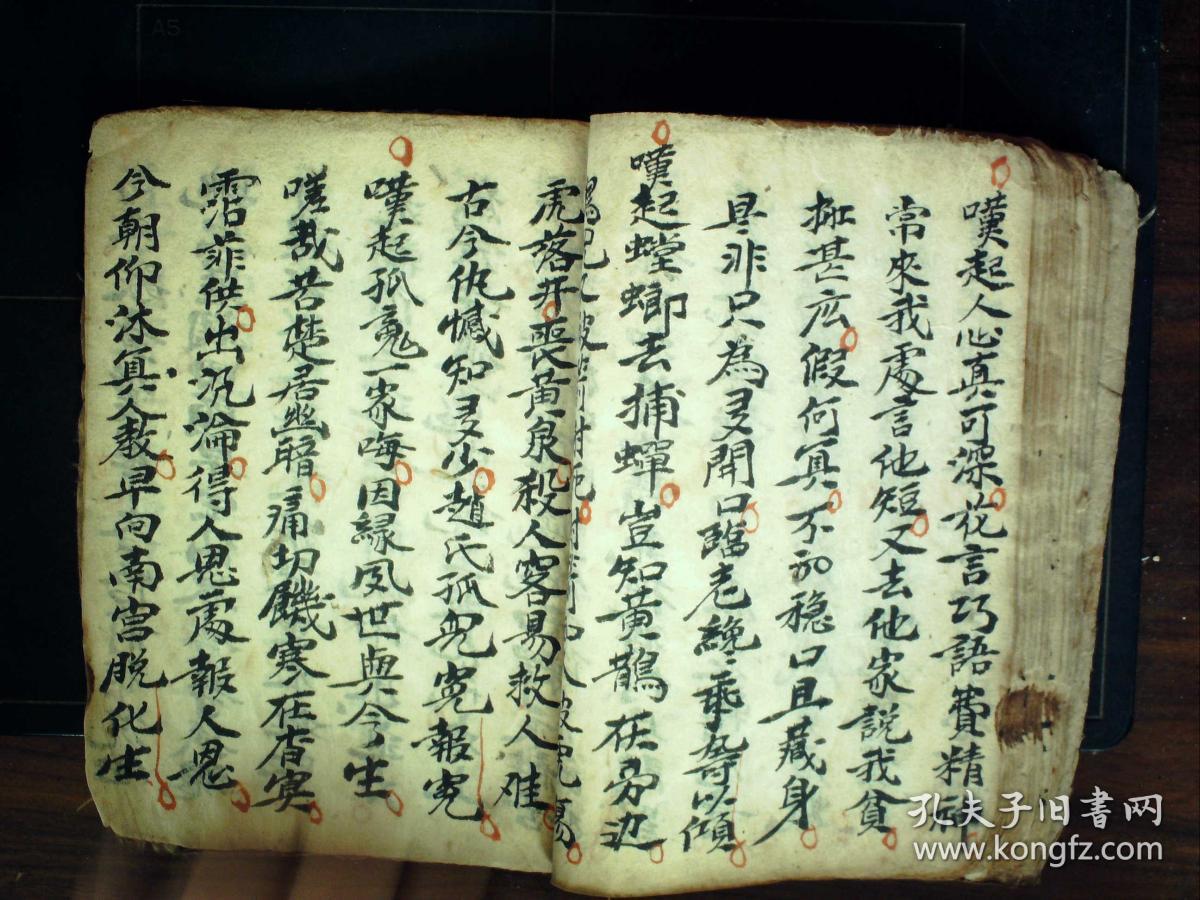 嘆起人心真可深花言巧語費精神
常來我處言他短又去他家説我貧
甚広假何真不如穏口且藏身
是非只為多開口臨老
嘆起螳螂去捕蟬豈知黄鵲在旁边
虎落井喪黄泉殺人容易救人难
古今仇憾知多少趙氏孤兒寃報寃
嘆起孤魂一家晦因緣夙世與今生
嗟哉苦楚居幽暗痛切饑寒在杳冥
霑菲供出沉淪得人恩處報人恩
今朝仰沐真人教早向南宫脱化生
孔夫子旧书网
www.kongfz.com
A5